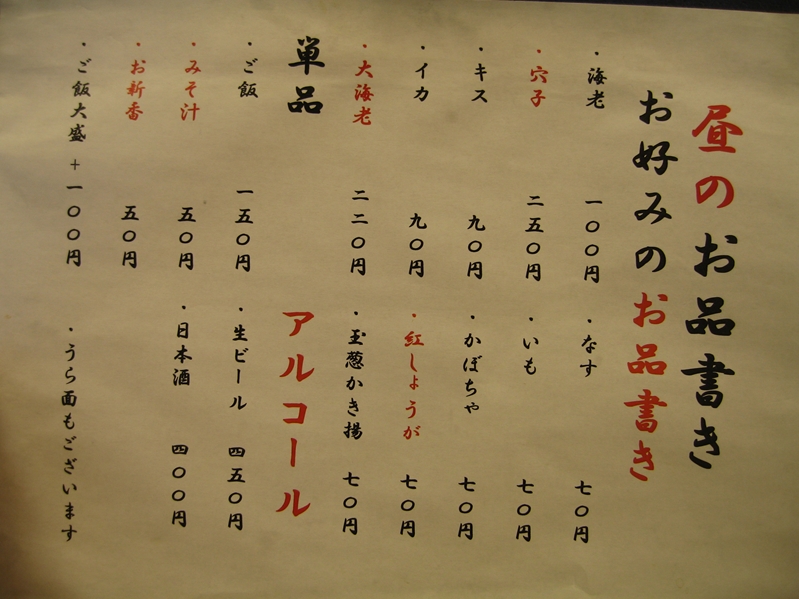 昼のお品書き
お好みのお品書き
・海老 一〇〇円
・穴子 二五〇円
・キス 九〇円
・イカ 九〇円
・大海老 二二〇円
・なす 七〇円
・いも 七〇円
・かぼちゃ 七〇円
・紅しょうが 七〇円
・玉葱かき揚 七〇円
単品
・ご飯 一五〇円
・みそ汁 五〇円
・お新香 五〇円
・ご飯大盛+一〇〇円
アルコール
・生ビール 四五〇円
・日本酒 四〇〇円
・うら面もございます